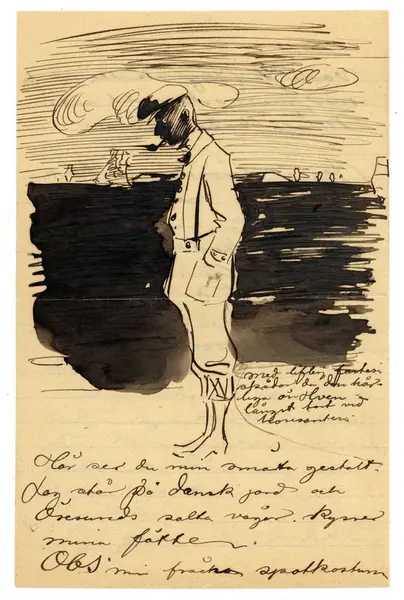 med liflig fantasi
skådar du den här-
liga ön Hven
längst bort vid
horisonten.
Här ser du min smärta gestalt.
Jag står på dansk jord och
Öresunds salta vågor kysser
mina fötter.
Obs! min fräcka sportkostum